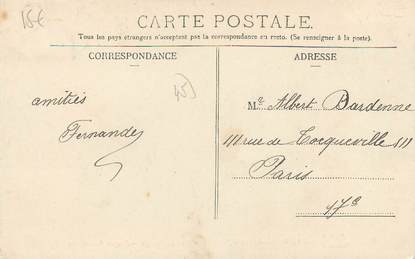 15€
CARTE POSTALE.
Tous les pays étrangers n'acceptent pas la correspondance au recto. (Se renseigner à la poste).
CORRESPONDANCE
ADRESSE
45)
amitiés
Fernande
Mr Albert Bardenne
111 rue de Tocqueville 111
Paris
17e